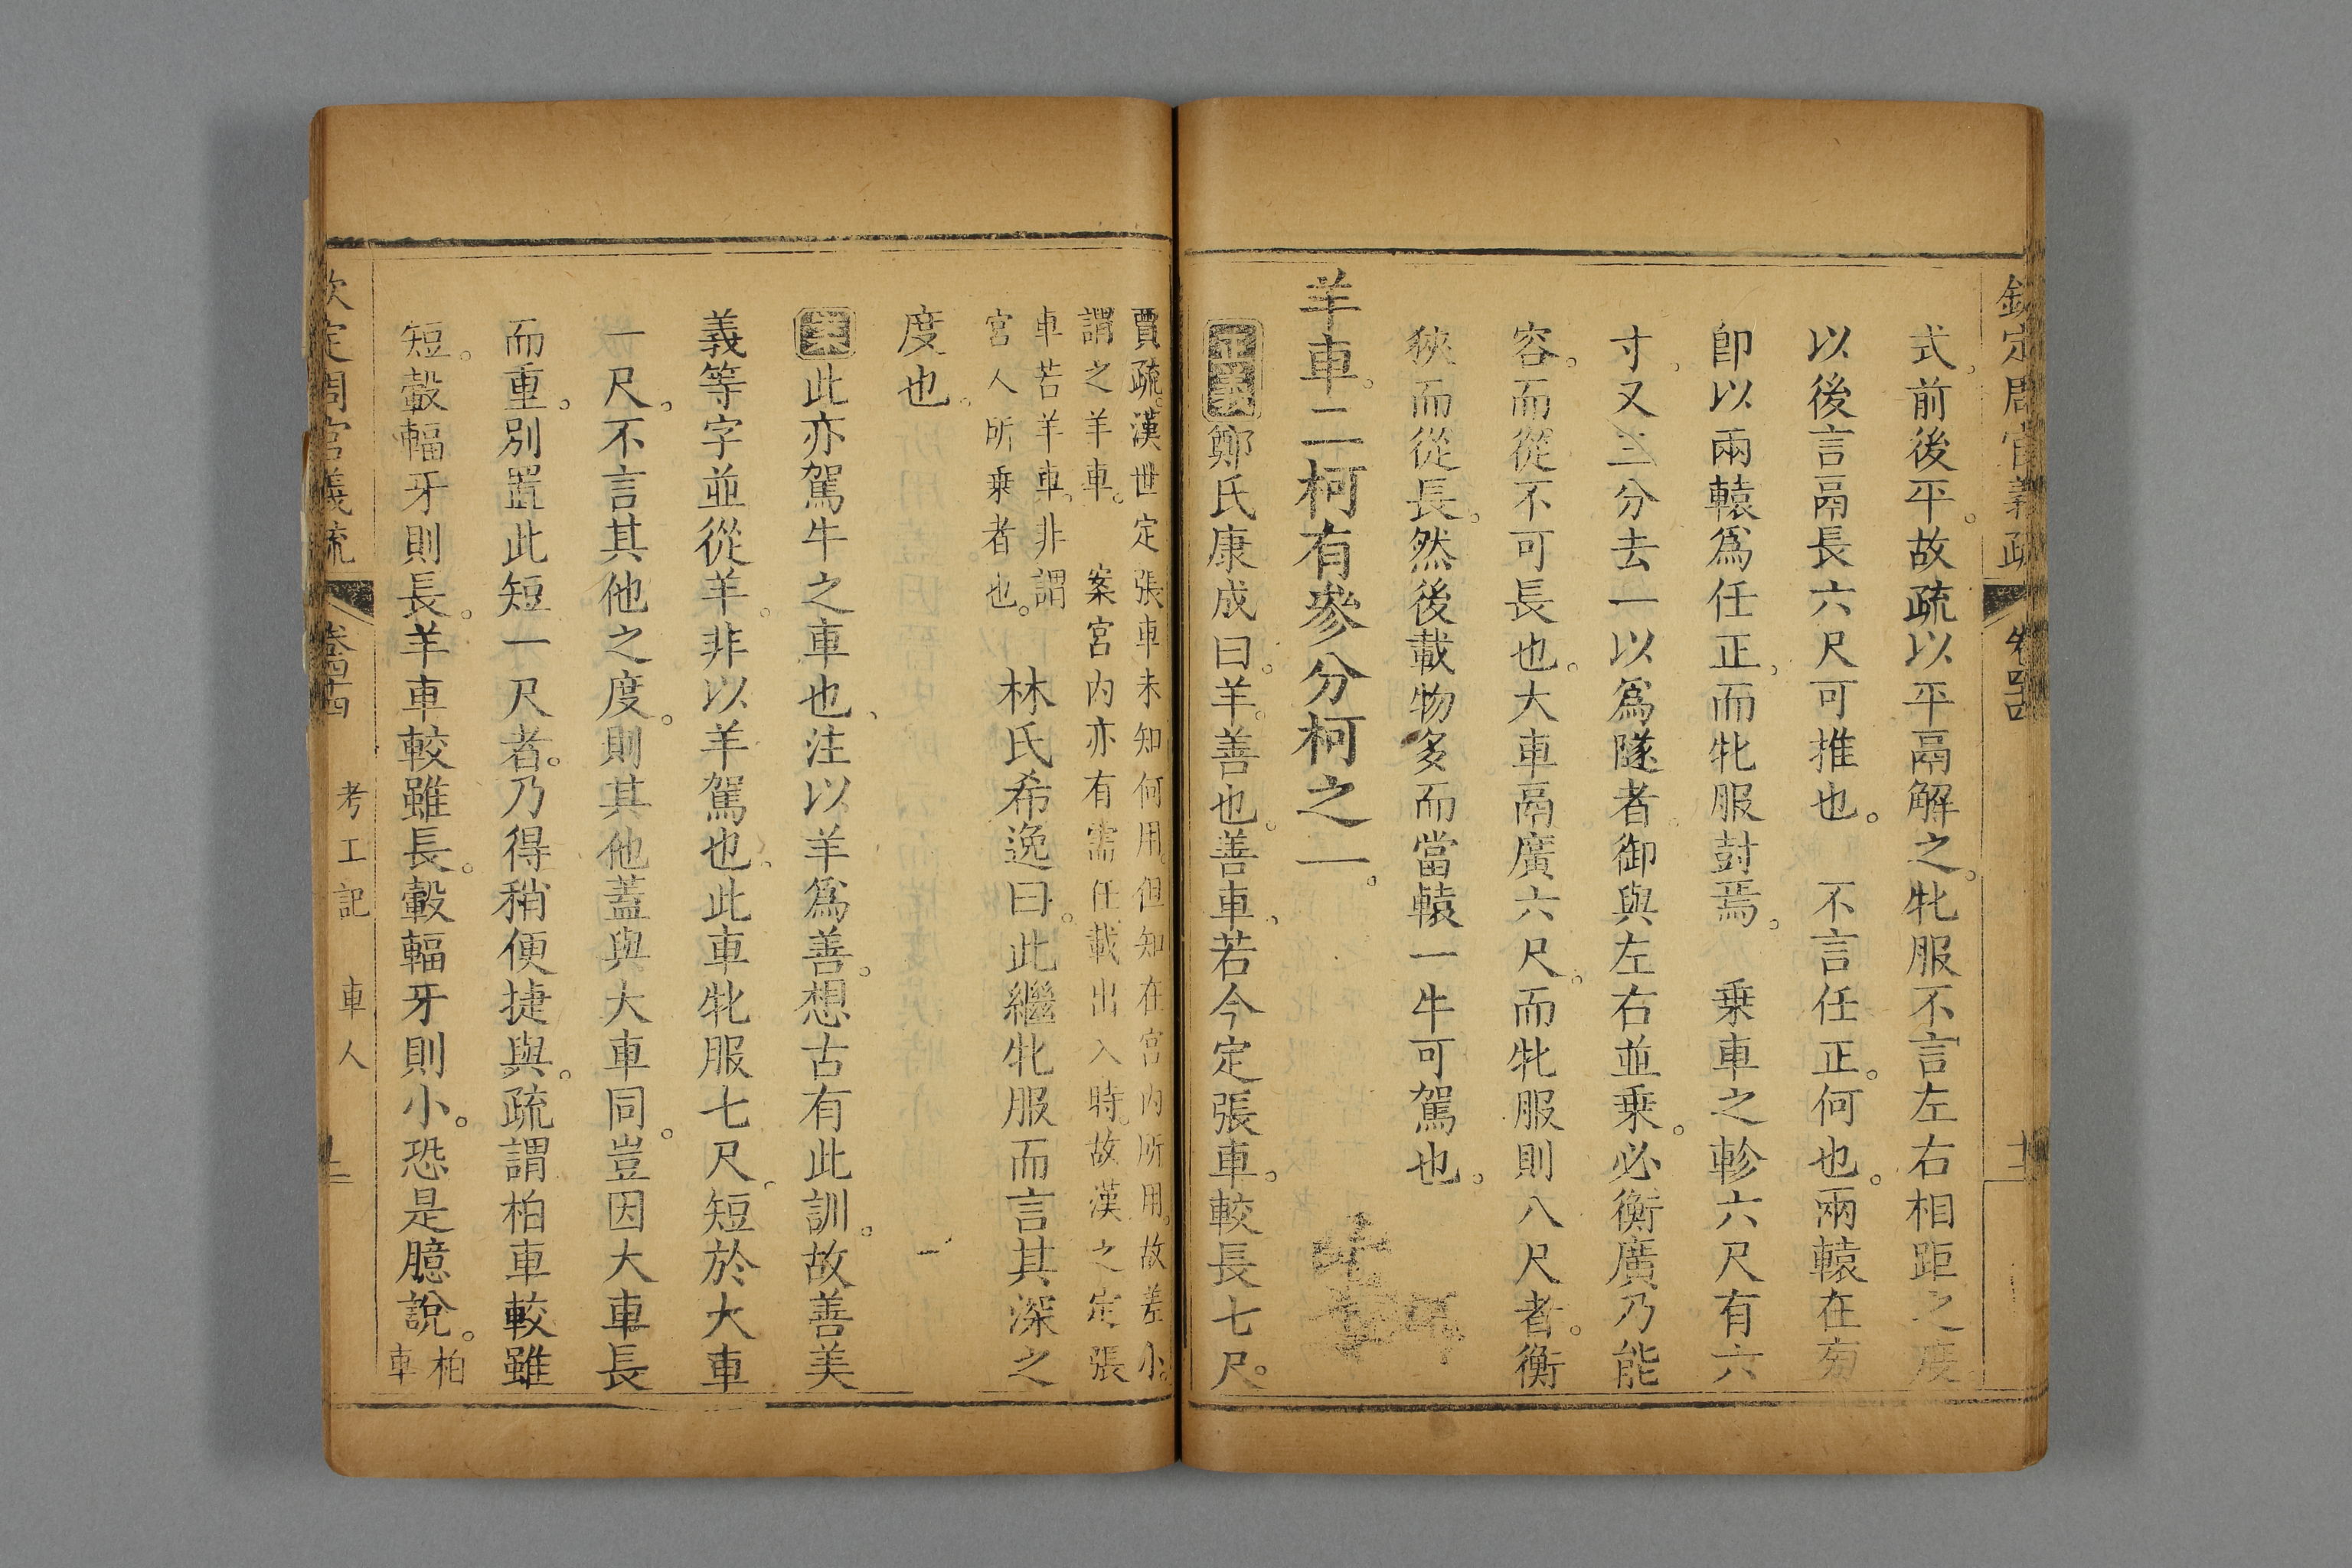 欽定周官義疏 卷四十四 十二
式。前後平。故疏以平鬲解之。牝服不言左右相距之度。
以後言鬲長六尺可推也。 不言任正。何也。兩轅在旁
卽以兩轅爲任正。而牝服封焉。 乗車之軫六尺有六
寸。又三分去一以爲隧者。御與左右並乗。必衡廣乃能
容。而從不可長也。大車鬲廣六尺。而牝服則八尺者。衡
狹而從長。然後載物多而當轅一牛可駕也。
羊車。二柯有參分柯之一。
正義鄭氏康成曰。羊。善也。善車。若今定張車。較長七尺。
賈疏。漢世定張車未知何用。但知在宮內所用。故差小。
謂之羊車。 案宮內亦有需任載出入時。故漢之定張
車若羊車。非謂
宮人所乗者也。
林氏希逸曰。此繼牝服而言其深之
度也。
案此亦駕牛之車也。注以羊爲善。想古有此訓。故善美
義等字並從羊。非以羊駕也。此車牝服七尺。短於大車
一尺。不言其他之度。則其他蓋與大車同。豈因大車長
而重。別置此短一尺者。乃得稍便捷與。疏謂柏車較雖
短。轂輻牙則長。羊車較雖長。轂輻牙則小。恐是臆說。柏
車
欽定周官義疏 卷四十四 考工記 車人 十二